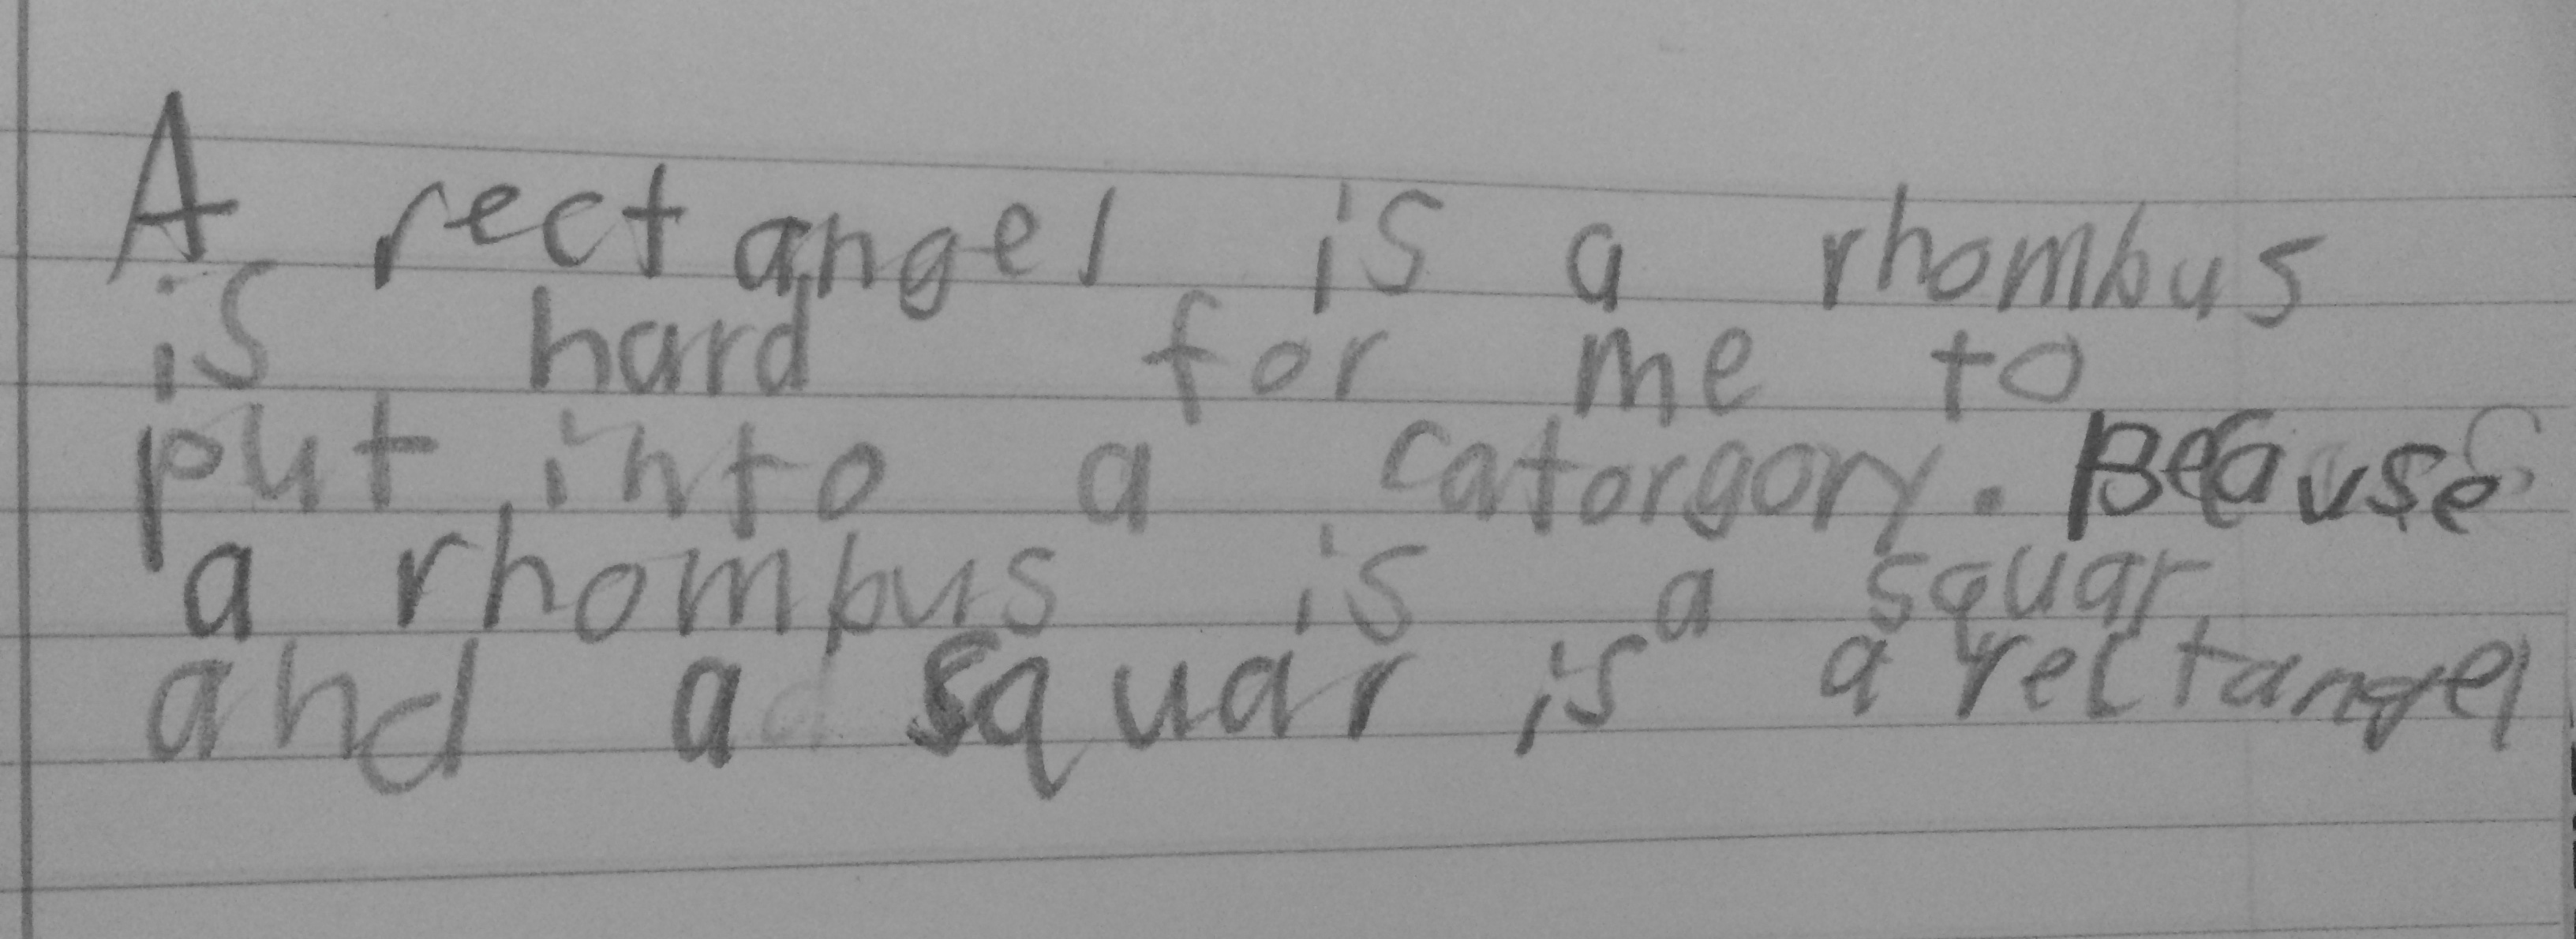 A rectangel is a rhombus
is hard for me to
put into a catorgory. Beause
a rhombus is a squar
and a squar is a rectangel